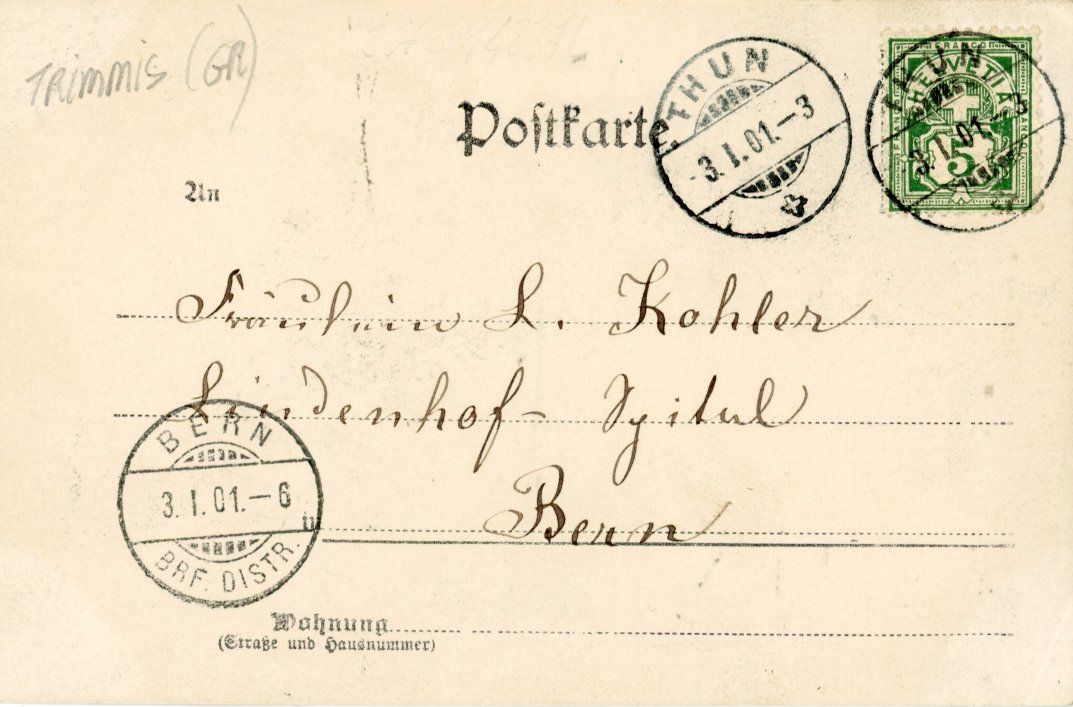 TRIMMIS (GR)
Postkarte
THUN
3. I. 01. – 3
FRANCO
HELVETIA
5
THUN
3. I. 01. – 3
An
Fräulein L. Kohler
Lindenhof- Spital
Bern
BERN
3. I. 01. – 6
BRF. DISTR.
in
Wohnung
(Straße und Hausnummer)